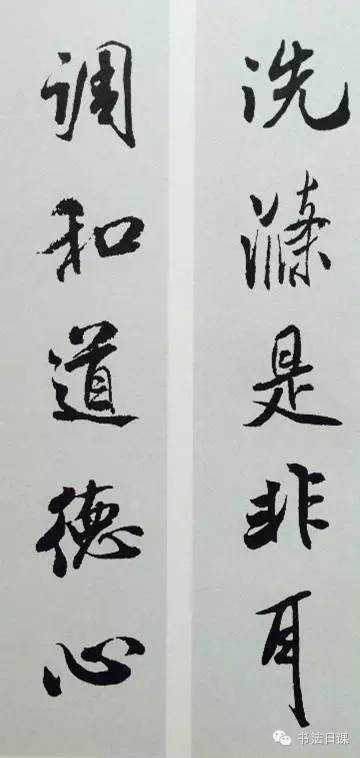 洗滌是非耳
調和道德心
书法日课